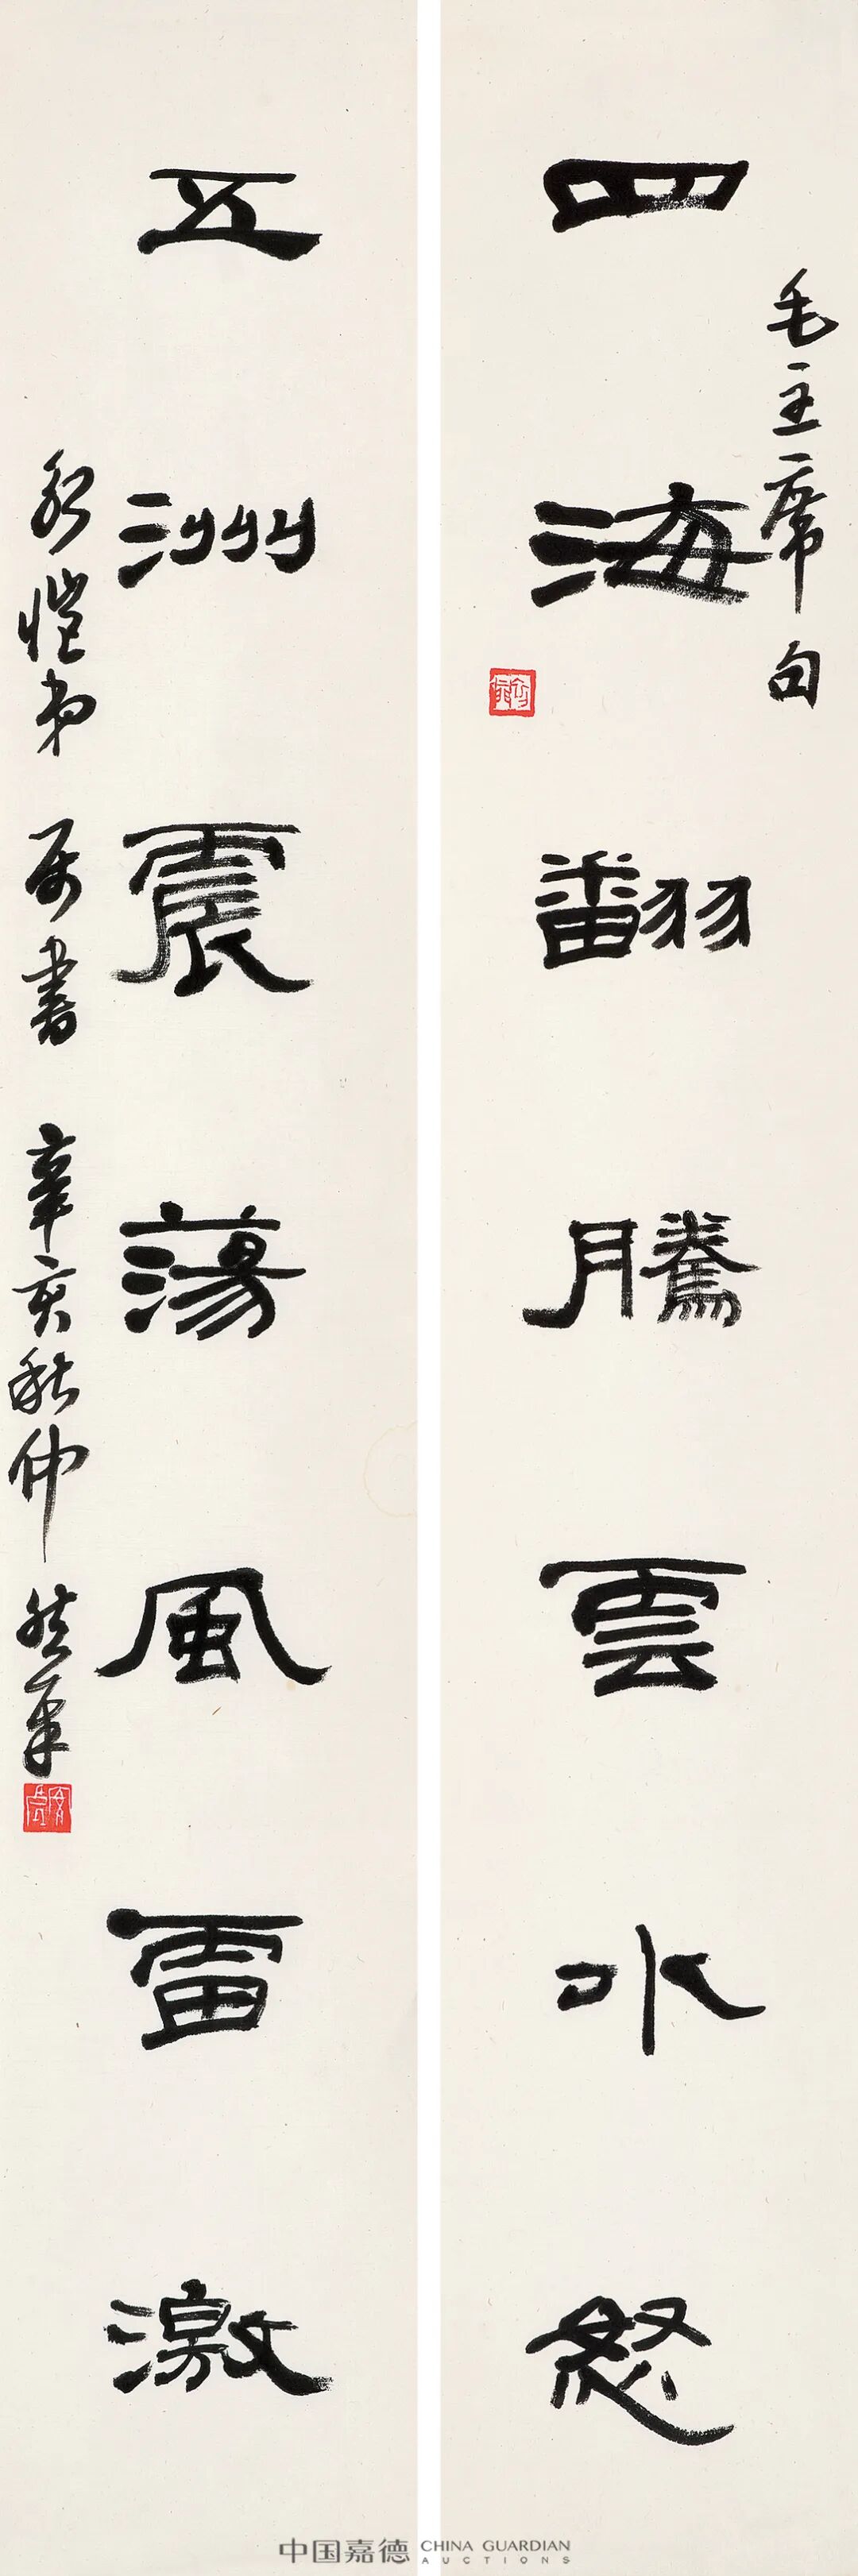 毛主席句
四海翻騰雲水怒
五洲震蕩風雷激
愷弟属書 辛亥秋仲
中国嘉德 CHINA GUARDIAN
AUCTIONS